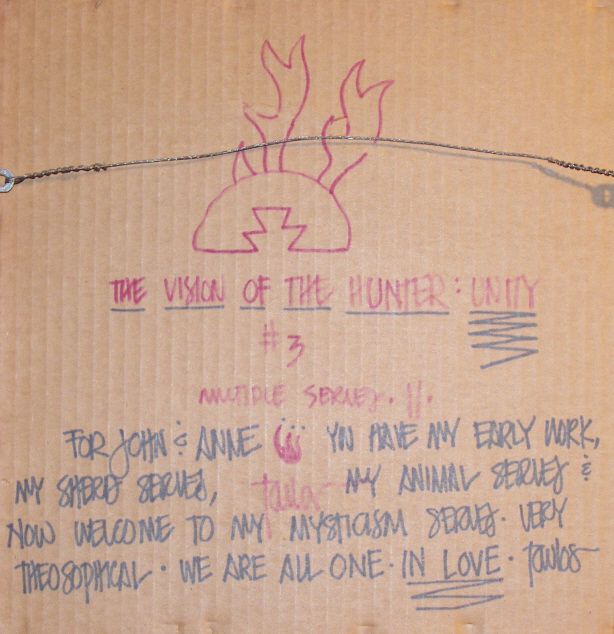 THE VISION OF THE HUNTER: UNITY
#3
MULTIPLE SERIES. 11.
FOR JOHN & ANNE YOU HAVE MY EARLY WORK,
MY SHERD SERIES, MY ANIMAL SERIES &
NOW WELCOME TO MY MYSTICISM SERIES. VERY
THEOSOPHICAL · WE ARE ALL ONE · IN LOVE ·